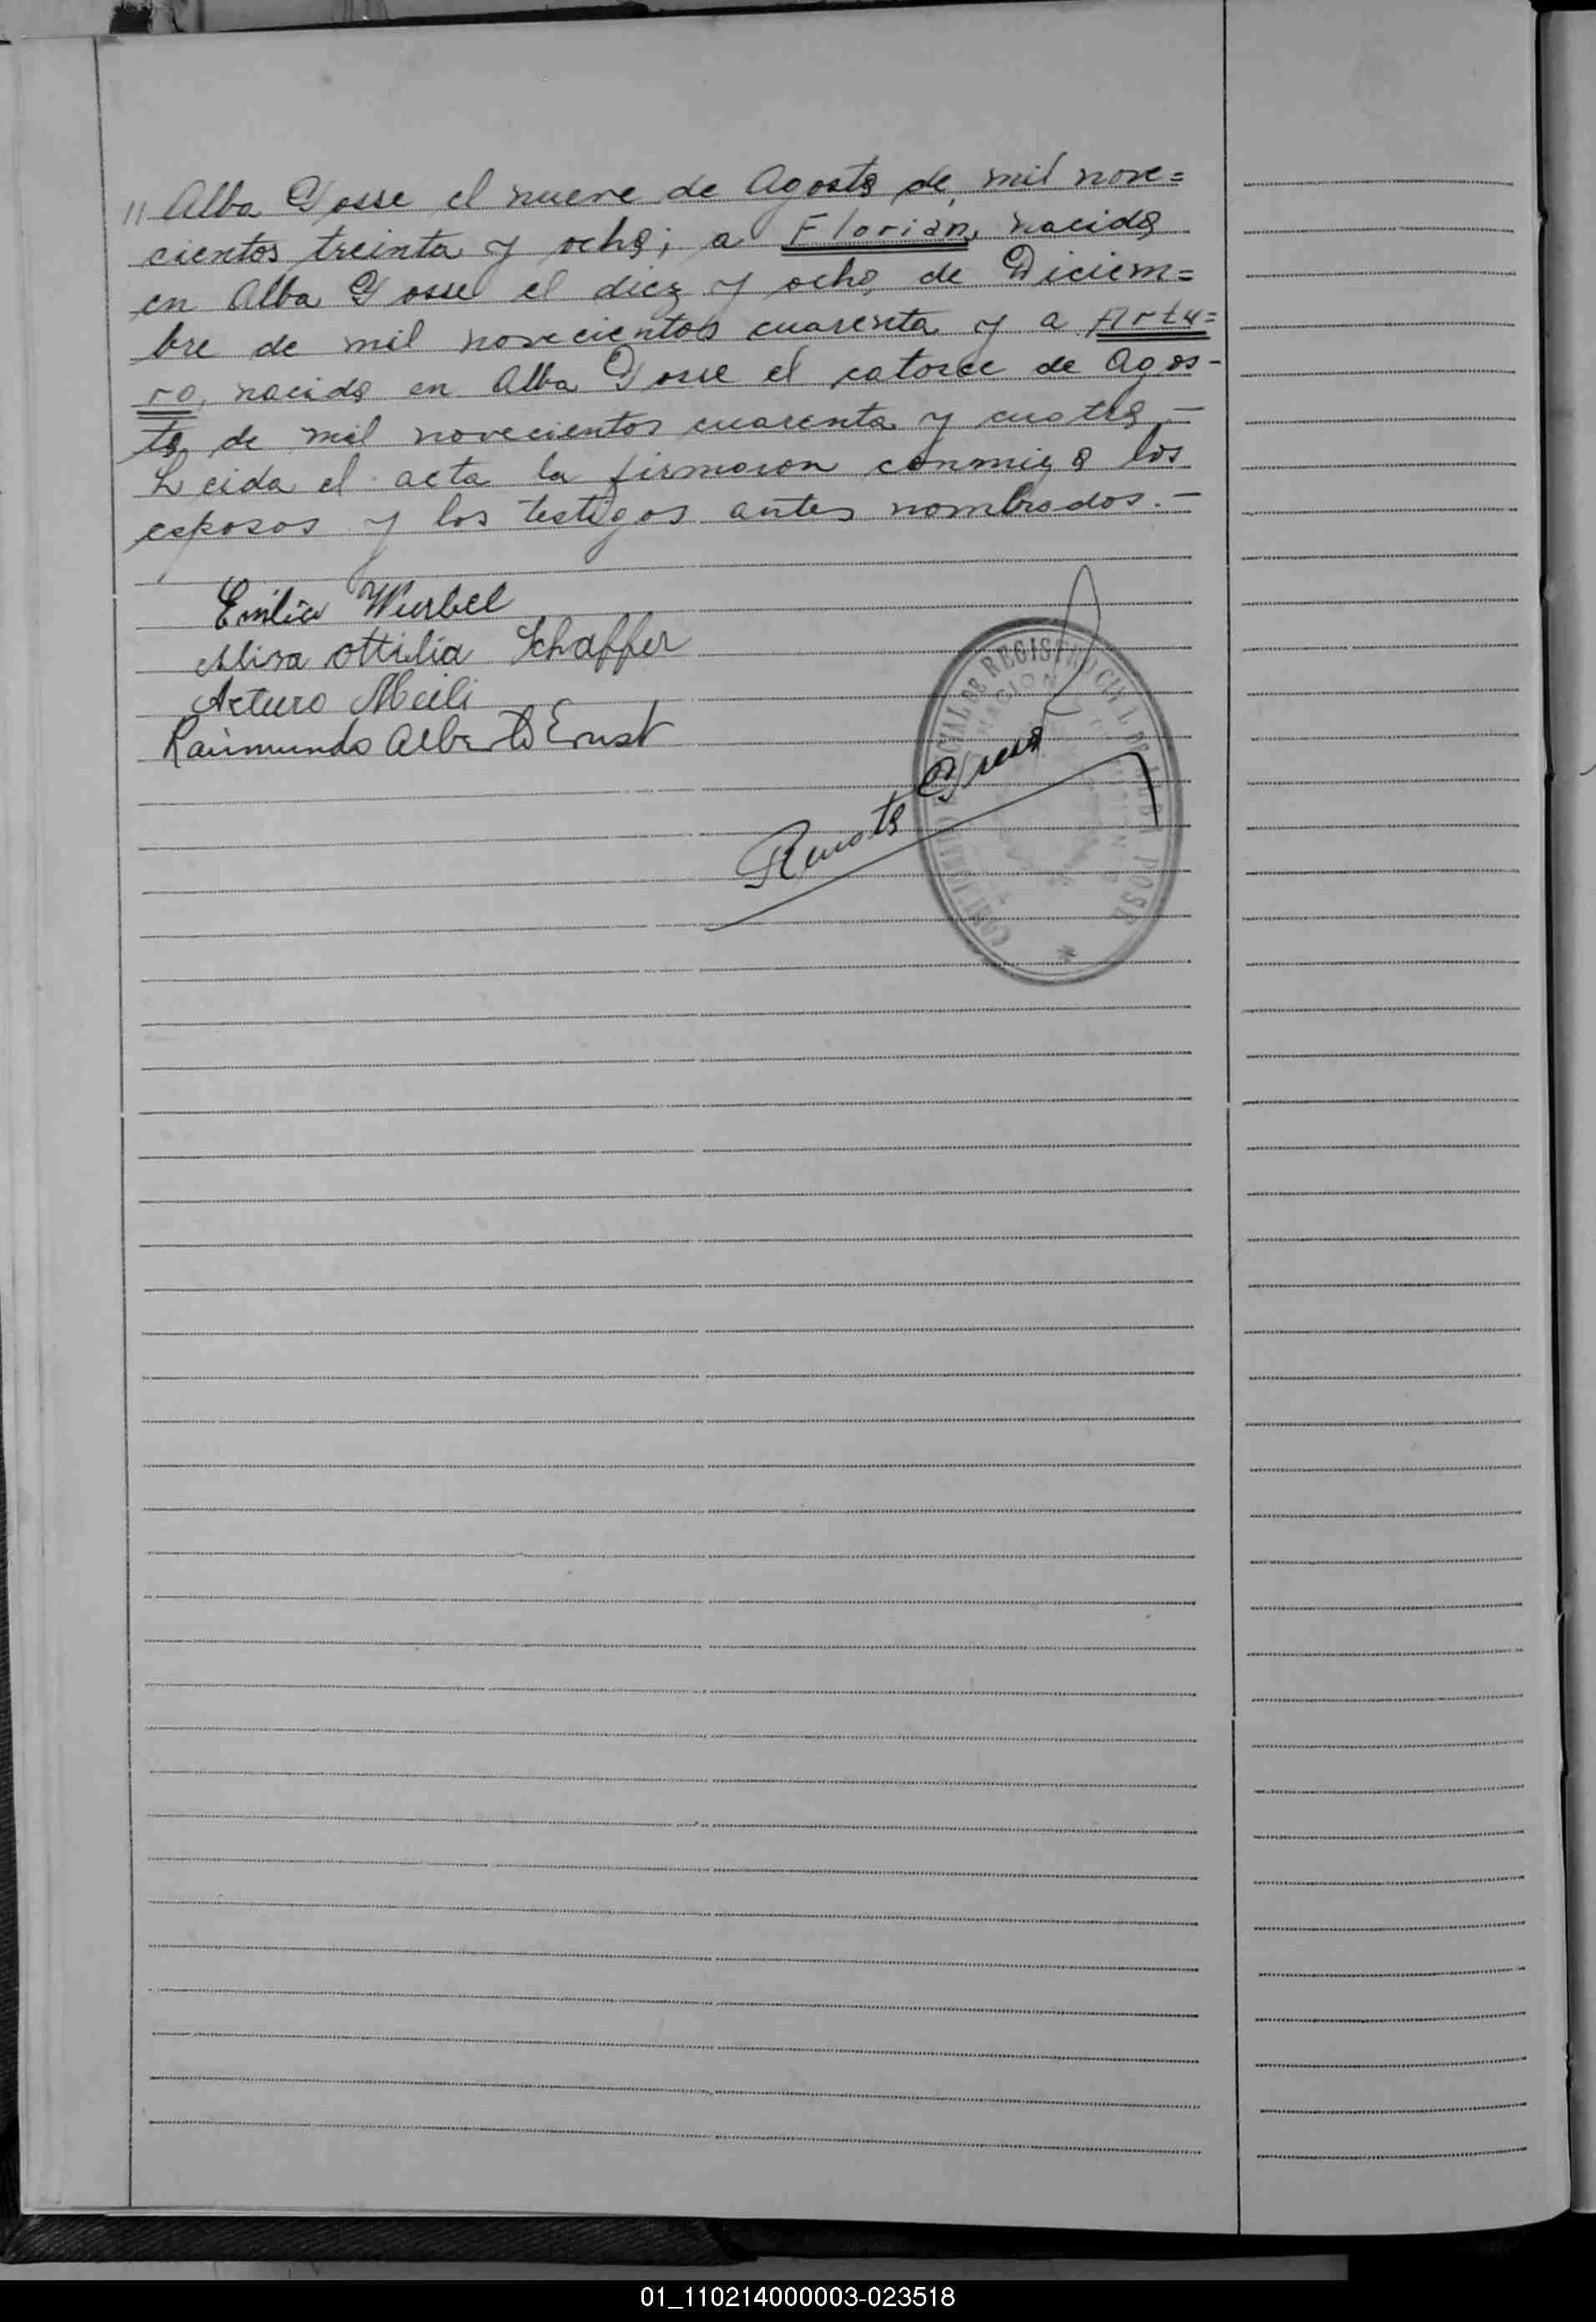 " Alba Posse el nueve de Agosto de mil nove=
cientos treinta y ocho; a Florian, nacido
en Alba Posse el diez y ocho de Diciem=
bre de mil novecientos cuarenta y a Artu=
ro, nacido en Alba Posse el catorce de Agos-
to de mil novecientos cuarenta y cuatro -
Leida el acta la firmaron conmigo los
esposos y los testigos antes nombrados. -
Emilio Wurbel
Alisa Ottilia Schaffer
Arturo Meili
Raimundo Alberto Ernst
DE REGISTRO CIVIL DE ALBA POSSE
Renato
01_110214000003-023518